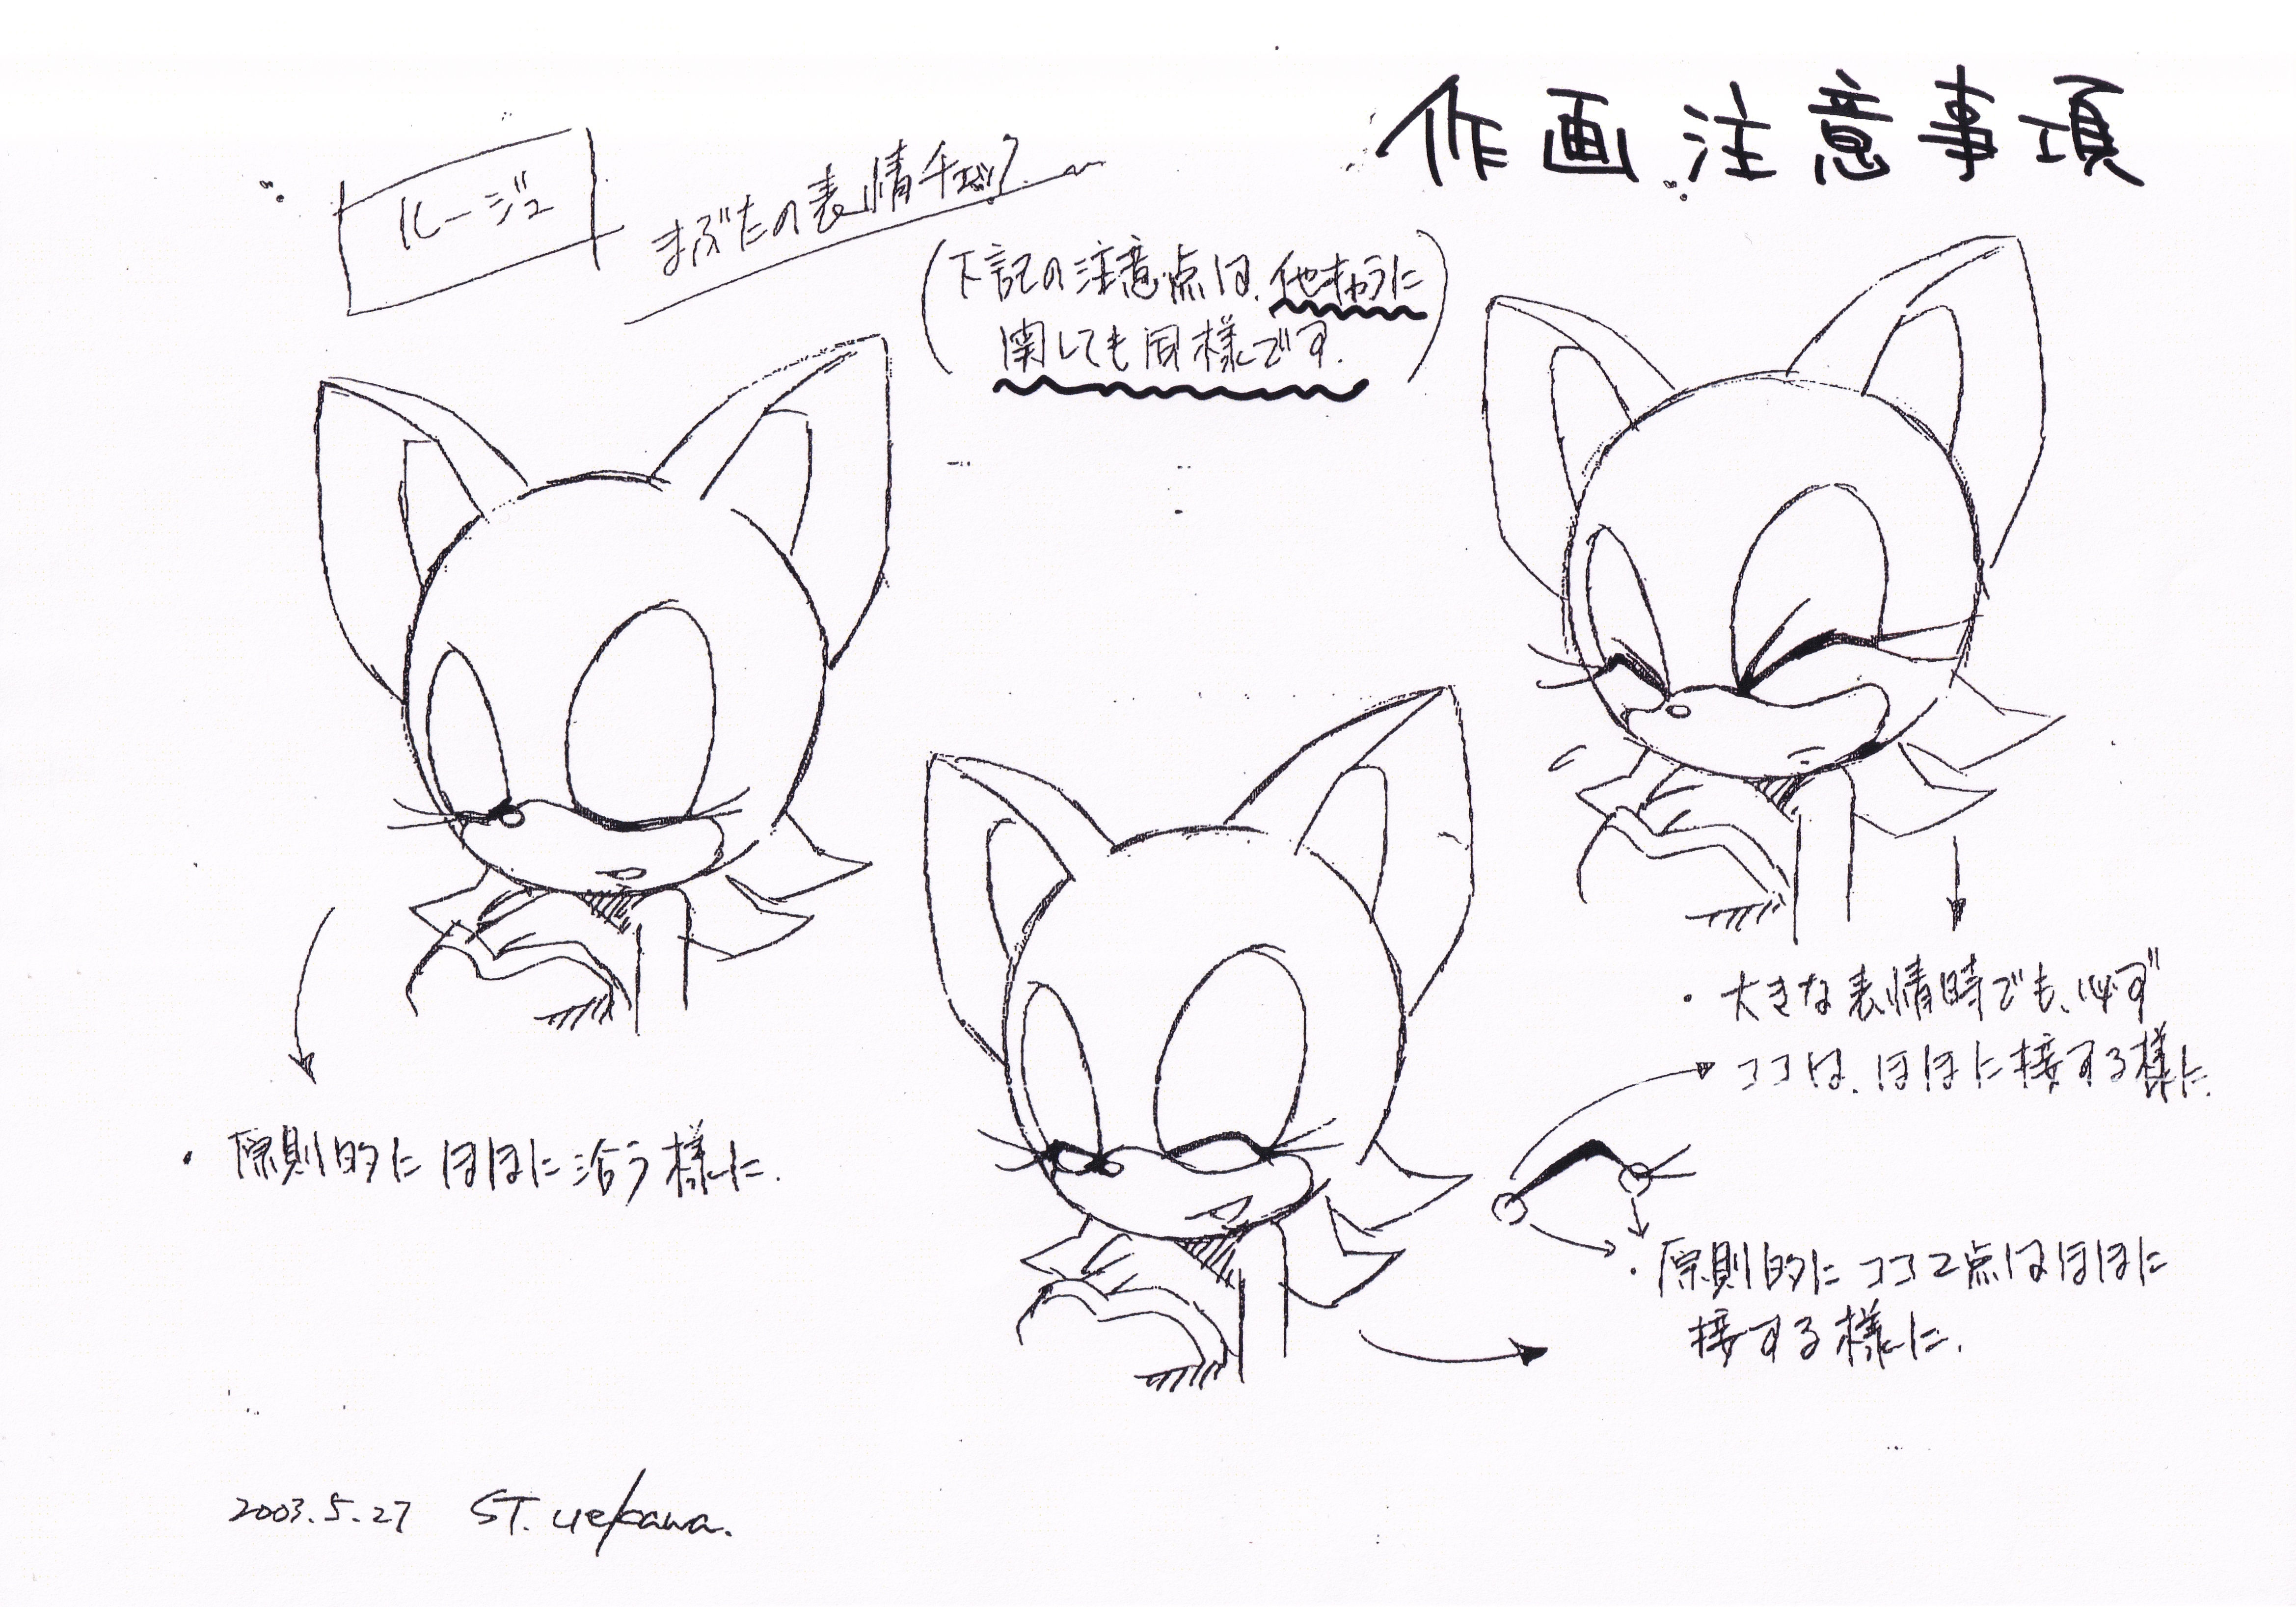 作画注意事項
ルージュ
まぶたの表情チェック
(下記の注意点は、他キャラに
関しても同様です.)
・大きな表情時でも、必ず
ココは、ほほに接する様に.
・原則的にほほに沿う様に.
・原則的にココ2点はほほに
接する様に.
2003.5.27 ST. Uekawa.